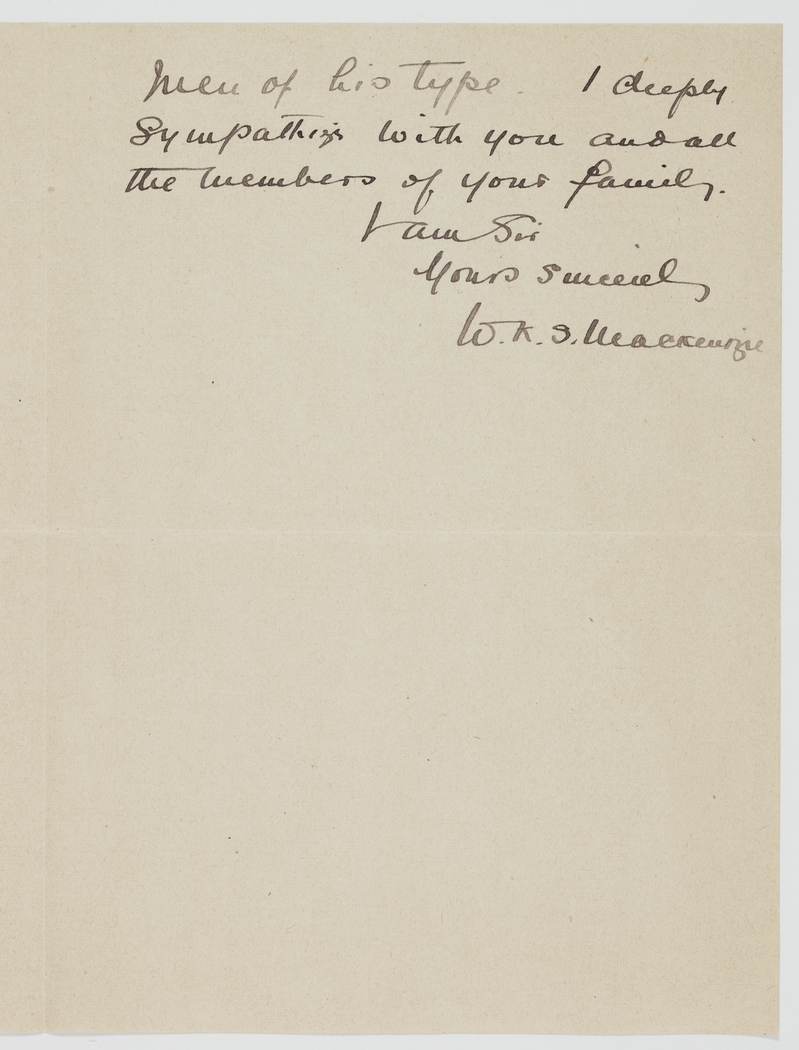 Men of his type. I deeply
Sympathize with you and all
the members of your family.
I am Sir
Yours Sincerely
W. K. S. Mackenzie